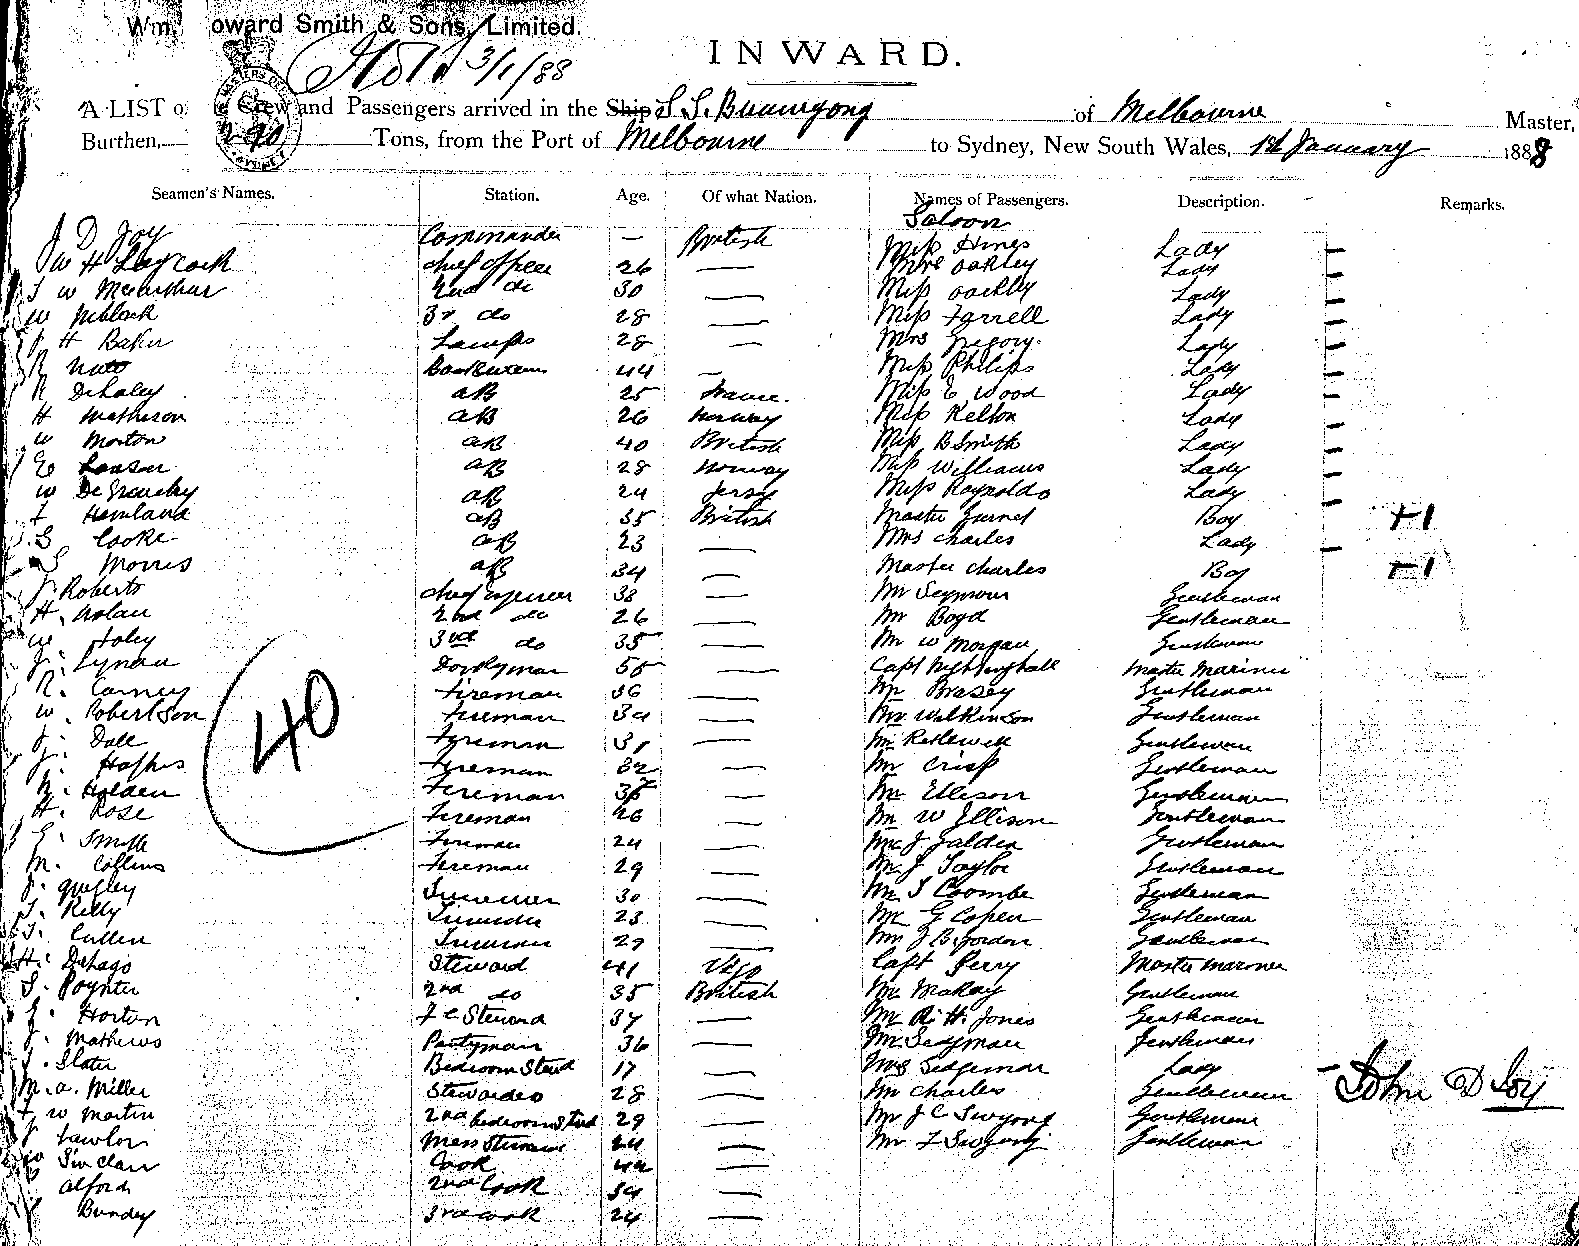 Wm. oward Smith & Sons, Limited.
3/1/88
INWARD.
A LIST o Crew and Passengers arrived in the Ship S.S. Buninyong of Melbourne Master,
Burthen, Tons, from the Port of Melbourne to Sydney, New South Wales, 1st January 1888
Seamen's Names. Station. Age. Of what Nation. Names of Passengers. Description. Remarks.
Saloon
J D Joy Commander — British Miss Hines Lady —
W H Laycock chief officer 26 — Mrs Oakley Lady —
J W McArthur 2nd do 30 — Miss Oakley Lady —
W 3r do 28 — Miss Farrell Lady —
H Baker Lamps 28 — Mrs Gregory Lady —
R 44 — Miss Philips Lady —
R Dehaley AB 25 France. Miss E Wood Lady —
H Matheson AB 26 Norway Miss Kelton Lady —
W Morton AB 40 British Miss B Smith Lady —
E AB 28 Norway Miss Williams Lady —
W De Gruchy AB 24 Jersy Miss Raynolds Lady —
AB 35 British Master Boy +1
S Cooke AB 23 — Mrs Charles Lady —
S Morris AB 34 — Master Charles Boy +1
J. Roberts chief Engineer 38 — Mr Seymour Gentleman
H. Nolan 2nd do 26 — Mr Boyd Gentleman
W. Foley 3rd do 35 — Mr W Morgan Gentleman
J. Lynau Donkyman 55 — Capt Master Mariner
R. Carney Fireman 36 — Mr Brasey Gentleman
W. Robertson Fireman — Mr Wilkinson Gentleman
40
J. Fireman 31 — Mr Gentleman
J. Fireman 32 — Mr Crisp Gentleman
R. Holden Fireman — Mr Ellison Gentleman
H. Rose Fireman 26 — Mr W Ellison Gentleman
G. Smith Fireman 24 — Mr J Gentleman
M. Collins Fireman 29 — Mr J Taylor Gentleman
J. Quigley Trimmer 30 — Mr S Coombe Gentleman
J. Kelly Trimmer 23 — Mr G Copen Gentleman
J. Cullen Trimmer 27 — Mr J B Gordon Gentleman
H. Dehago Steward 41 Vigo Capt Perry Master Mariner
J. Poynter 2nd do 35 British Mr McKay Gentleman
Horton F C Steward 37 — Mr R. H. Jones Gentleman
J. Mathews Pantyman 36 — Mr Gentleman
J. Slater Bedroom Steward 17 — Mrs Sedgeman Lady —
M. A. Miller Stewardess 28 — Mr Charles Gentleman John D Joy
F W Martin 2nd bedroom Stwd 29 — Mr J C Gentleman
J Lawlor Mess Steward — Mr F Gentleman
Sinclair Cook —
Alford 2nd Cook 34 —
Bundey 3rd Cook 24 —